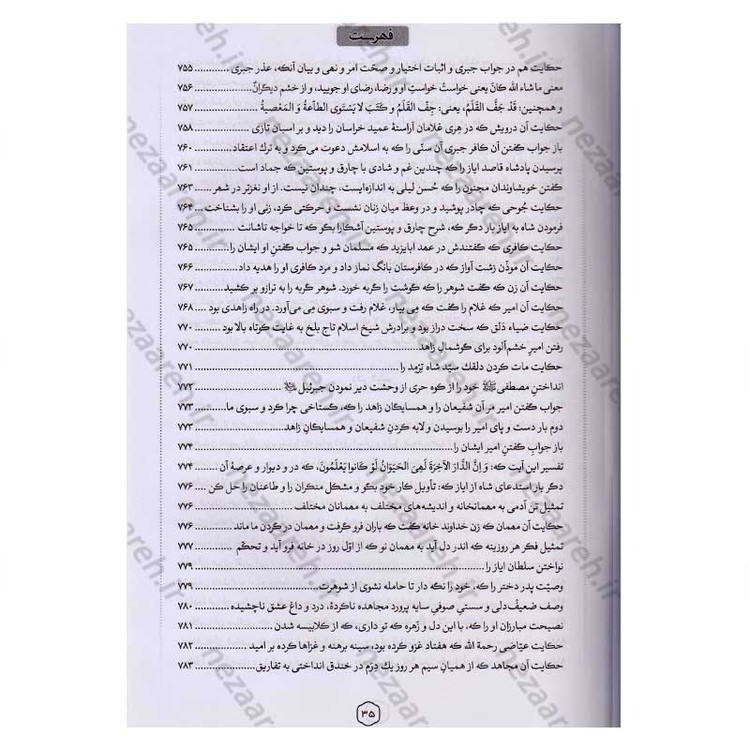 فهرست
حکایت هم در جواب جبری و اثبات اختیار و صحّت امر و نهی و بیان آنکه، عذر جبری ............ ۷۵۵
معنی ما شاء الله کانَ یعنی خواستْ خواستِ او و رضا، رضای او جویید، و از خشم دیگرانْ ۷۵۶
و همچنین: قَدْ جَفَّ القَلَمُ، یعنی: جَفَّ القَلَمُ و کَتَبَ لا یَسْتَوی الطّاعَةُ وَ المَعْصیةُ ۷۵۷
حکایت آن درویش که در هری غلامان آراستهٔ عمید خراسان را دید و بر اسبان تازی ۷۵۸
باز جواب گفتن آن کافر جبری آن سنّی را که به اسلامش دعوت می‌کرد و به ترك اعتقاد... ۷۶۰
پرسیدن پادشاه قاصد ایاز را که چندین غم و شادی با چارق و پوستین که جماد است... ۷۶۱
گفتن خویشاوندان مجنون را که حُسن لیلی به اندازه‌ایست، چندان نیست. از او نغزتر در شهر ..... ۷۶۳
حکایت جُوحی که چادر پوشید و در وعظ میان زنان نشست و حرکتی کرد، زنی او را بشناخت .... ۷۶۴
فرمودن شاه به ایاز بار دگر که، شرح چارق و پوستین آشکارا بگو که تا خواجه تاشانت............ ۷۶۵
حکایت کافری که گفتندش در عهد ابایزید که مسلمان شو و جواب گفتنِ او ایشان را ............ ۷۶۵
حکایت آن موذّن زشت آواز که در کافرستان بانگ نماز داد و مرد کافری او را هدیه داد............ ۷۶۶
حکایت آن زن که گفت شوهر را که گوشت را گربه خورد. شوهر گربه را به ترازو بر کشید........... ۷۶۷
حکایت آن امیر که غلام را گفت که مِی بیار، غلام رفت و سبوی مِی می‌آورد. در راه زاهدی بود ۷۶۸
حکایت ضیاء دَلق که سخت دراز بود و برادرش شیخ اسلام تاج بلخ به غایت کوتاه بالا بود ........ ۷۷۰
رفتن امیرِ خشم‌آلود برای گوشمال زاهد ............ ۷۷۰
حکایت مات کردن دلقك سیّد شاه تِرْمِد را ............ ۷۷۱
انداختنِ مصطفی ﷺ خود را از کوه حری از وحشت دیر نمودن جبرئیل ............ ۷۷۲
جواب گفتن امیر مر آن شفیعان را و همسایگان زاهد را که، گستاخی چرا کرد و سبوی ما........ ۷۷۳
دوم بار دست و پای امیر را بوسیدن و لابه کردنِ شفیعان و همسایگانِ زاهد............ ۷۷۳
باز جوابِ گفتنِ امیر ایشان را ............ ۷۷۴
تفسیر این آیت که: وَ اِنَّ الدّارَ الآخِرَةَ لَهِیَ الحَیَوانُ لَوْ کانوا یَعْلَمُونَ، که در و دیوار و عرصهٔ آن ......... ۷۷۴
دگر بار استدعای شاه از ایاز که: تأویل کار خود بگو و مشکل منکران را و طاعنان را حل کن .... ۷۷۶
تمثیل تن آدمی به مهمانخانه و اندیشه‌های مختلف به مهمانان مختلف ............ ۷۷۶
حکایت آن مهمان که زنِ خداوند خانه گفت که باران فرو گرفت و مهمان در گردن ما ماند ......... ۷۷۶
تمثیل فکر هر روزینه که اندر دل آید به مهمان نو که از اوّل روز در خانه فرو آید و تحکّم ......... ۷۷۷
نواختن سلطان ایاز را ............ ۷۷۹
وصیّت پدر دختر را که، خود را نگه دار تا حامله نشوی از شوهرت............ ۷۷۹
وصف ضعیف‌دلی و سستیِ صوفیِ سایه پرورد مجاهده ناکردهٔ، درد و داغ عشق ناچشیده ........ ۷۸۰
نصیحت مبارزان او را که، با این دل و زَهره که تو داری، که از کلابیسه شدن ............ ۷۸۱
حکایت عیّاضی رحمة الله که هفتاد غزو کرده بود، سینه برهنه و غزاها کرده بر امید ............ ۷۸۲
حکایت آن مجاهد که از همیانِ سیم هر روز یك دِرَم در خندق انداختی به تفاریق............ ۷۸۳
۳۵
nezaareh.ir